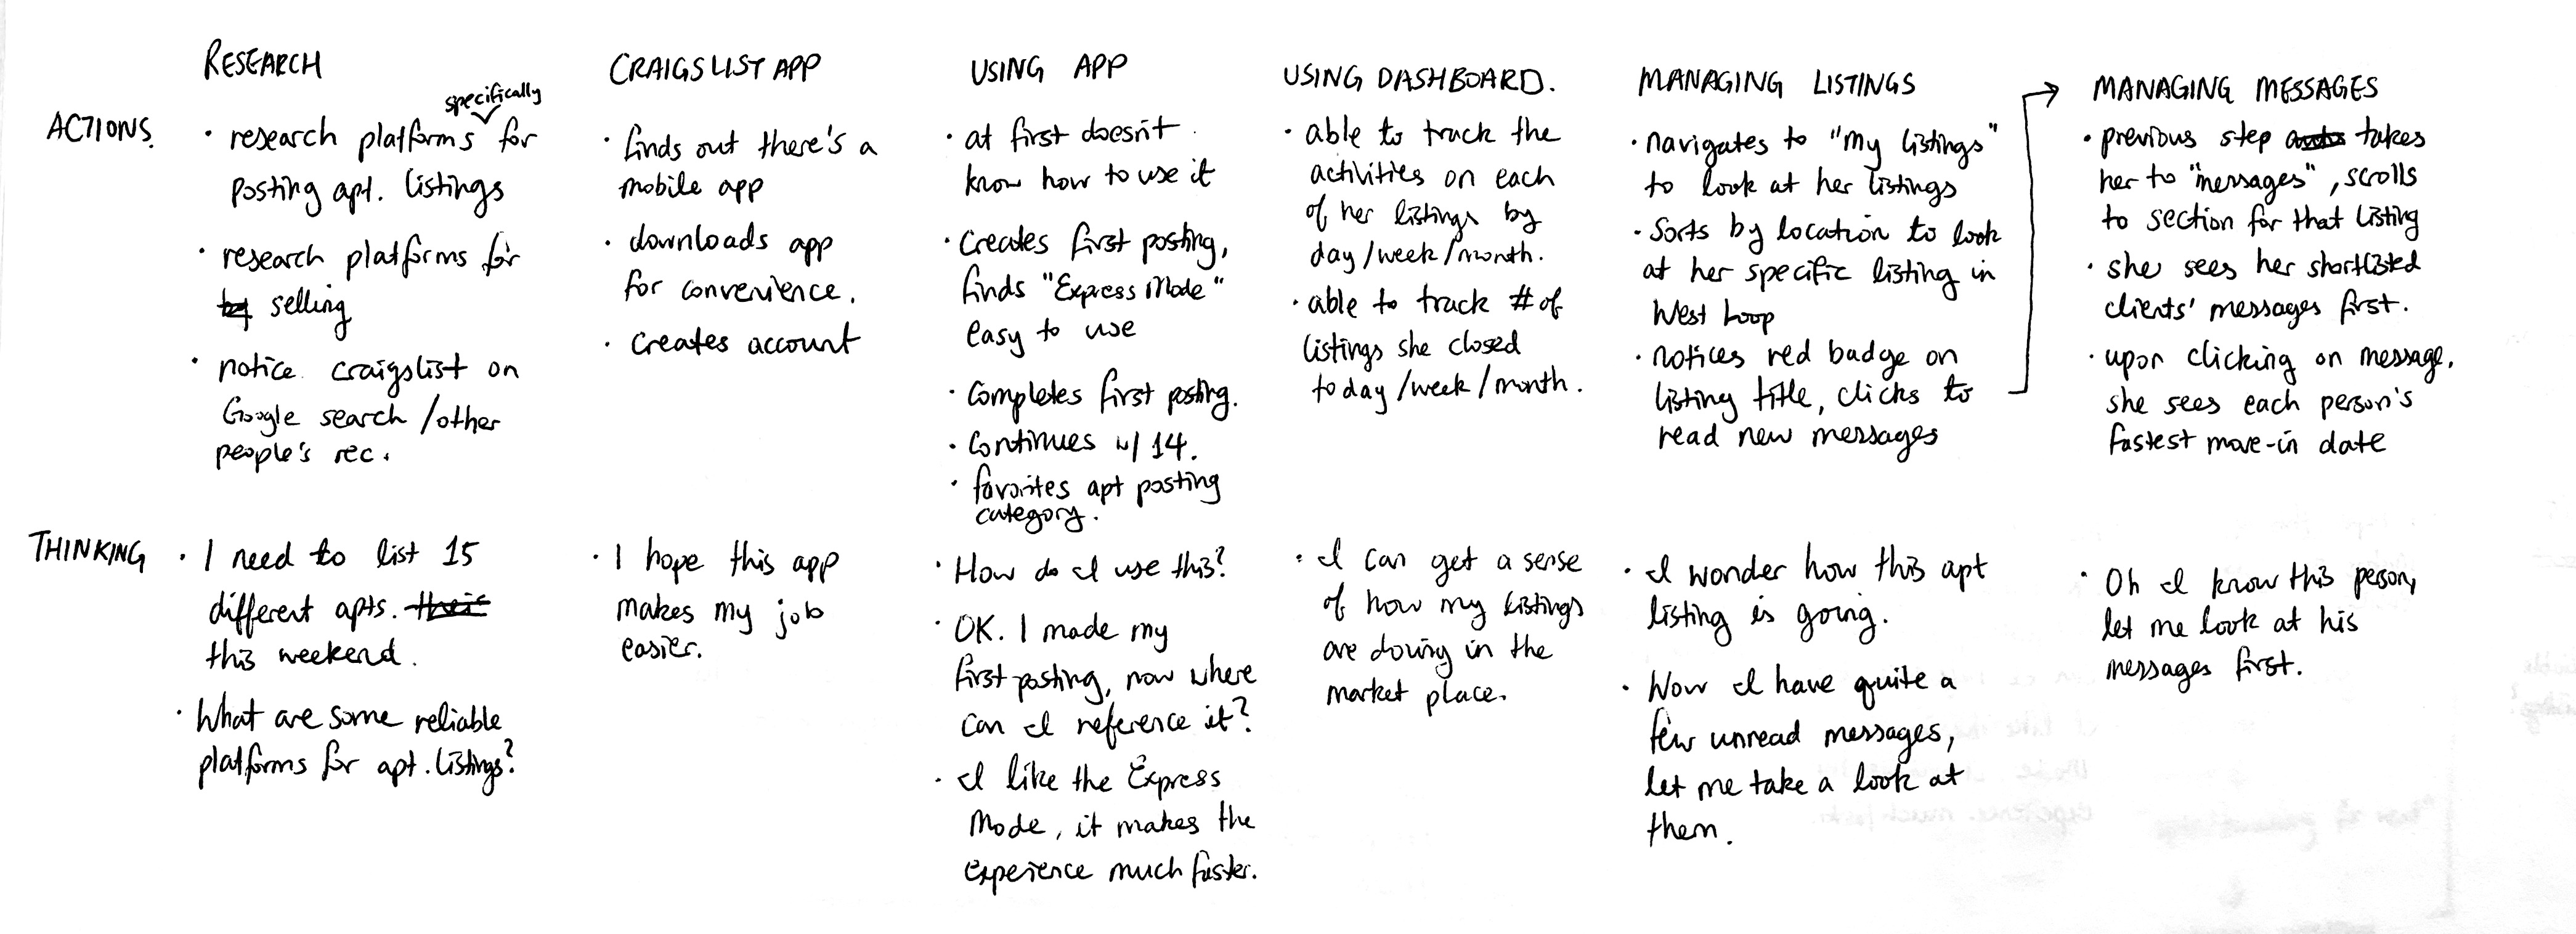 RESEARCH
CRAIGSLIST APP
USING APP
USING DASHBOARD.
MANAGING LISTINGS
MANAGING MESSAGES
ACTIONS.
specifically
• research platforms for
posting apt. listings
• research platforms for
selling
• notice craigslist on
Google search/other
people's rec.
• finds out there's a
mobile app
• downloads app
for convenience.
• creates account
• at first doesn't
know how to use it
• Creates first posting,
finds "Express Mode"
easy to use
• Completes first posting.
• Continues w/ 14.
• favorites apt posting
category.
• able to track the
activities on each
of her listings by
day/week/month.
• able to track # of
listings she closed
today/week/month.
• navigates to "my listings"
to look at her listings
• Sorts by location to look
at her specific listing in
West Loop
• notices red badge on
listing title, clicks to
read new messages
• previous step takes
her to "messages", scrolls
to section for that listing
• she sees her shortlisted
clients' messages first.
• upon clicking on message,
she sees each person's
fastest move-in date
THINKING
• I need to list 15
different apts.
this weekend.
• What are some reliable
platforms for apt. listings?
• I hope this app
makes my job
easier.
• How do I use this?
• OK. I made my
first posting, now where
can I reference it?
• I like the Express
Mode, it makes the
experience much faster.
• I can get a sense
of how my listings
are doing in the
market place.
• I wonder how this apt
listing is going.
• Wow I have quite a
few unread messages,
let me take a look at
them.
• Oh I know this person,
let me look at his
messages first.